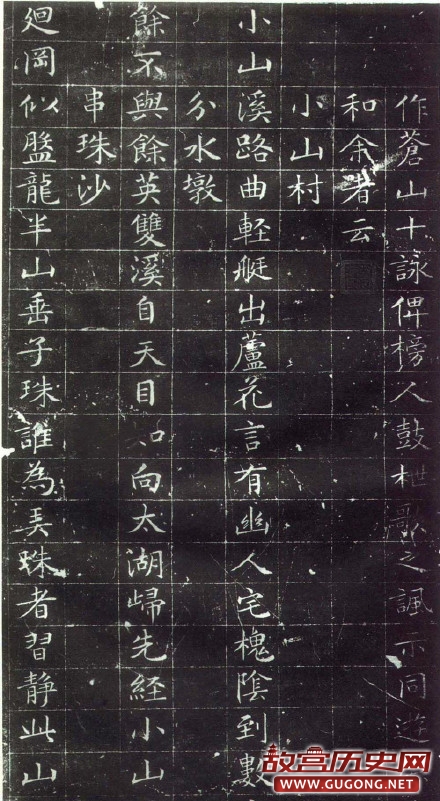 作蒼山十詠俾榜人鼓枻歌之諷示同遊
和余者云
小山村
小山溪路曲軽艇出蘆花言有幽人宅槐陰到數
分水墩
餘不與餘英雙溪自天目如向太湖歸先経小山
串珠沙
廻岡似盤龍半山垂子珠誰為弄珠者習静此山
故宫历史网
www.GUGONG.net